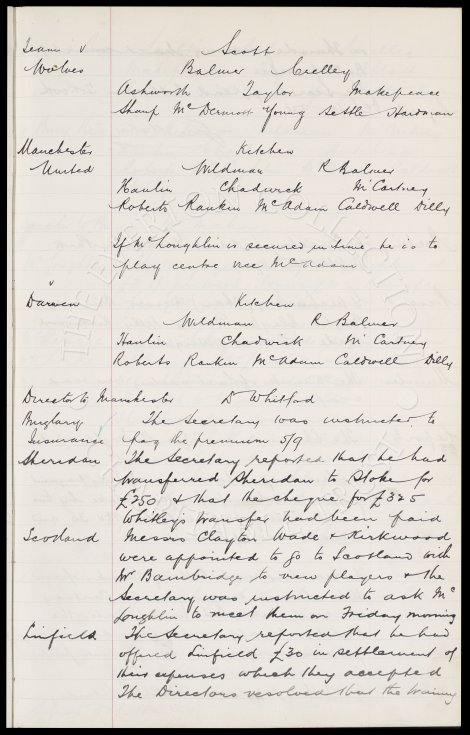 Team v Scott
Wolves Balmer Crelley
Ashworth Taylor Makepeace
Sharp McDermott Young Settle Hardman
Manchester Kitchen
United Wildman R Balmer
Haulin Chadwick McCartney
Roberts Rankin McAdam Caldwell Dilly
If McLoughlin is secured in time he is to
play centre vice McAdam
" Darwen Kitchen
Wildman R Balmer
Haulin Chadwick McCartney
Roberts Rankin McAdam Caldwell Dilly
Director to Manchester D Whitford
Burglary The Secretary was instructed to
Insurance pay the premium 5/9
Sheridan The Secretary reported that he had
transferred Sheridan to Stoke for
£250 & that the cheque for £325
Whitleys transfer had been paid
Scotland Messrs Clayton Wade & Kirkwood
were appointed to go to Scotland with
Mr Bainbridge to view players & the
Secretary was instructed to ask Mc
Loughlin to meet them on Friday morning
Linfield The Secretary reported that he had
offered Linfield £30 in settlement of
their expenses which they accepted
The Directors resolved that the training
THE EVERTON COLLECTION